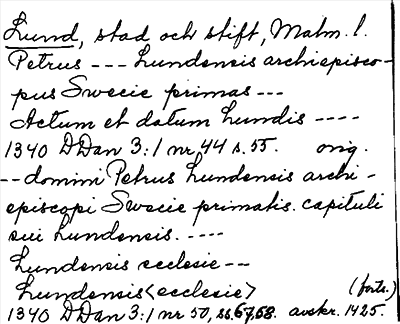 Lund, stad och stift, Malm. l.
Petrus --- Lundensis archiepisco-
pus Swecie primas ---
Actum et datum Lundis ----
1340 DDan 3:1 nr 44 s. 55. orig.
-- domini Petrus Lundensis archi-
episcopi Swecie primatis. capituli
sui Lundensis. ----
Lundensis ecclesie ---
Lundensis <ecclesie> (forts.)
1340 DDan 3:1 nr 50, ss. 67, 68. avskr. 1425.